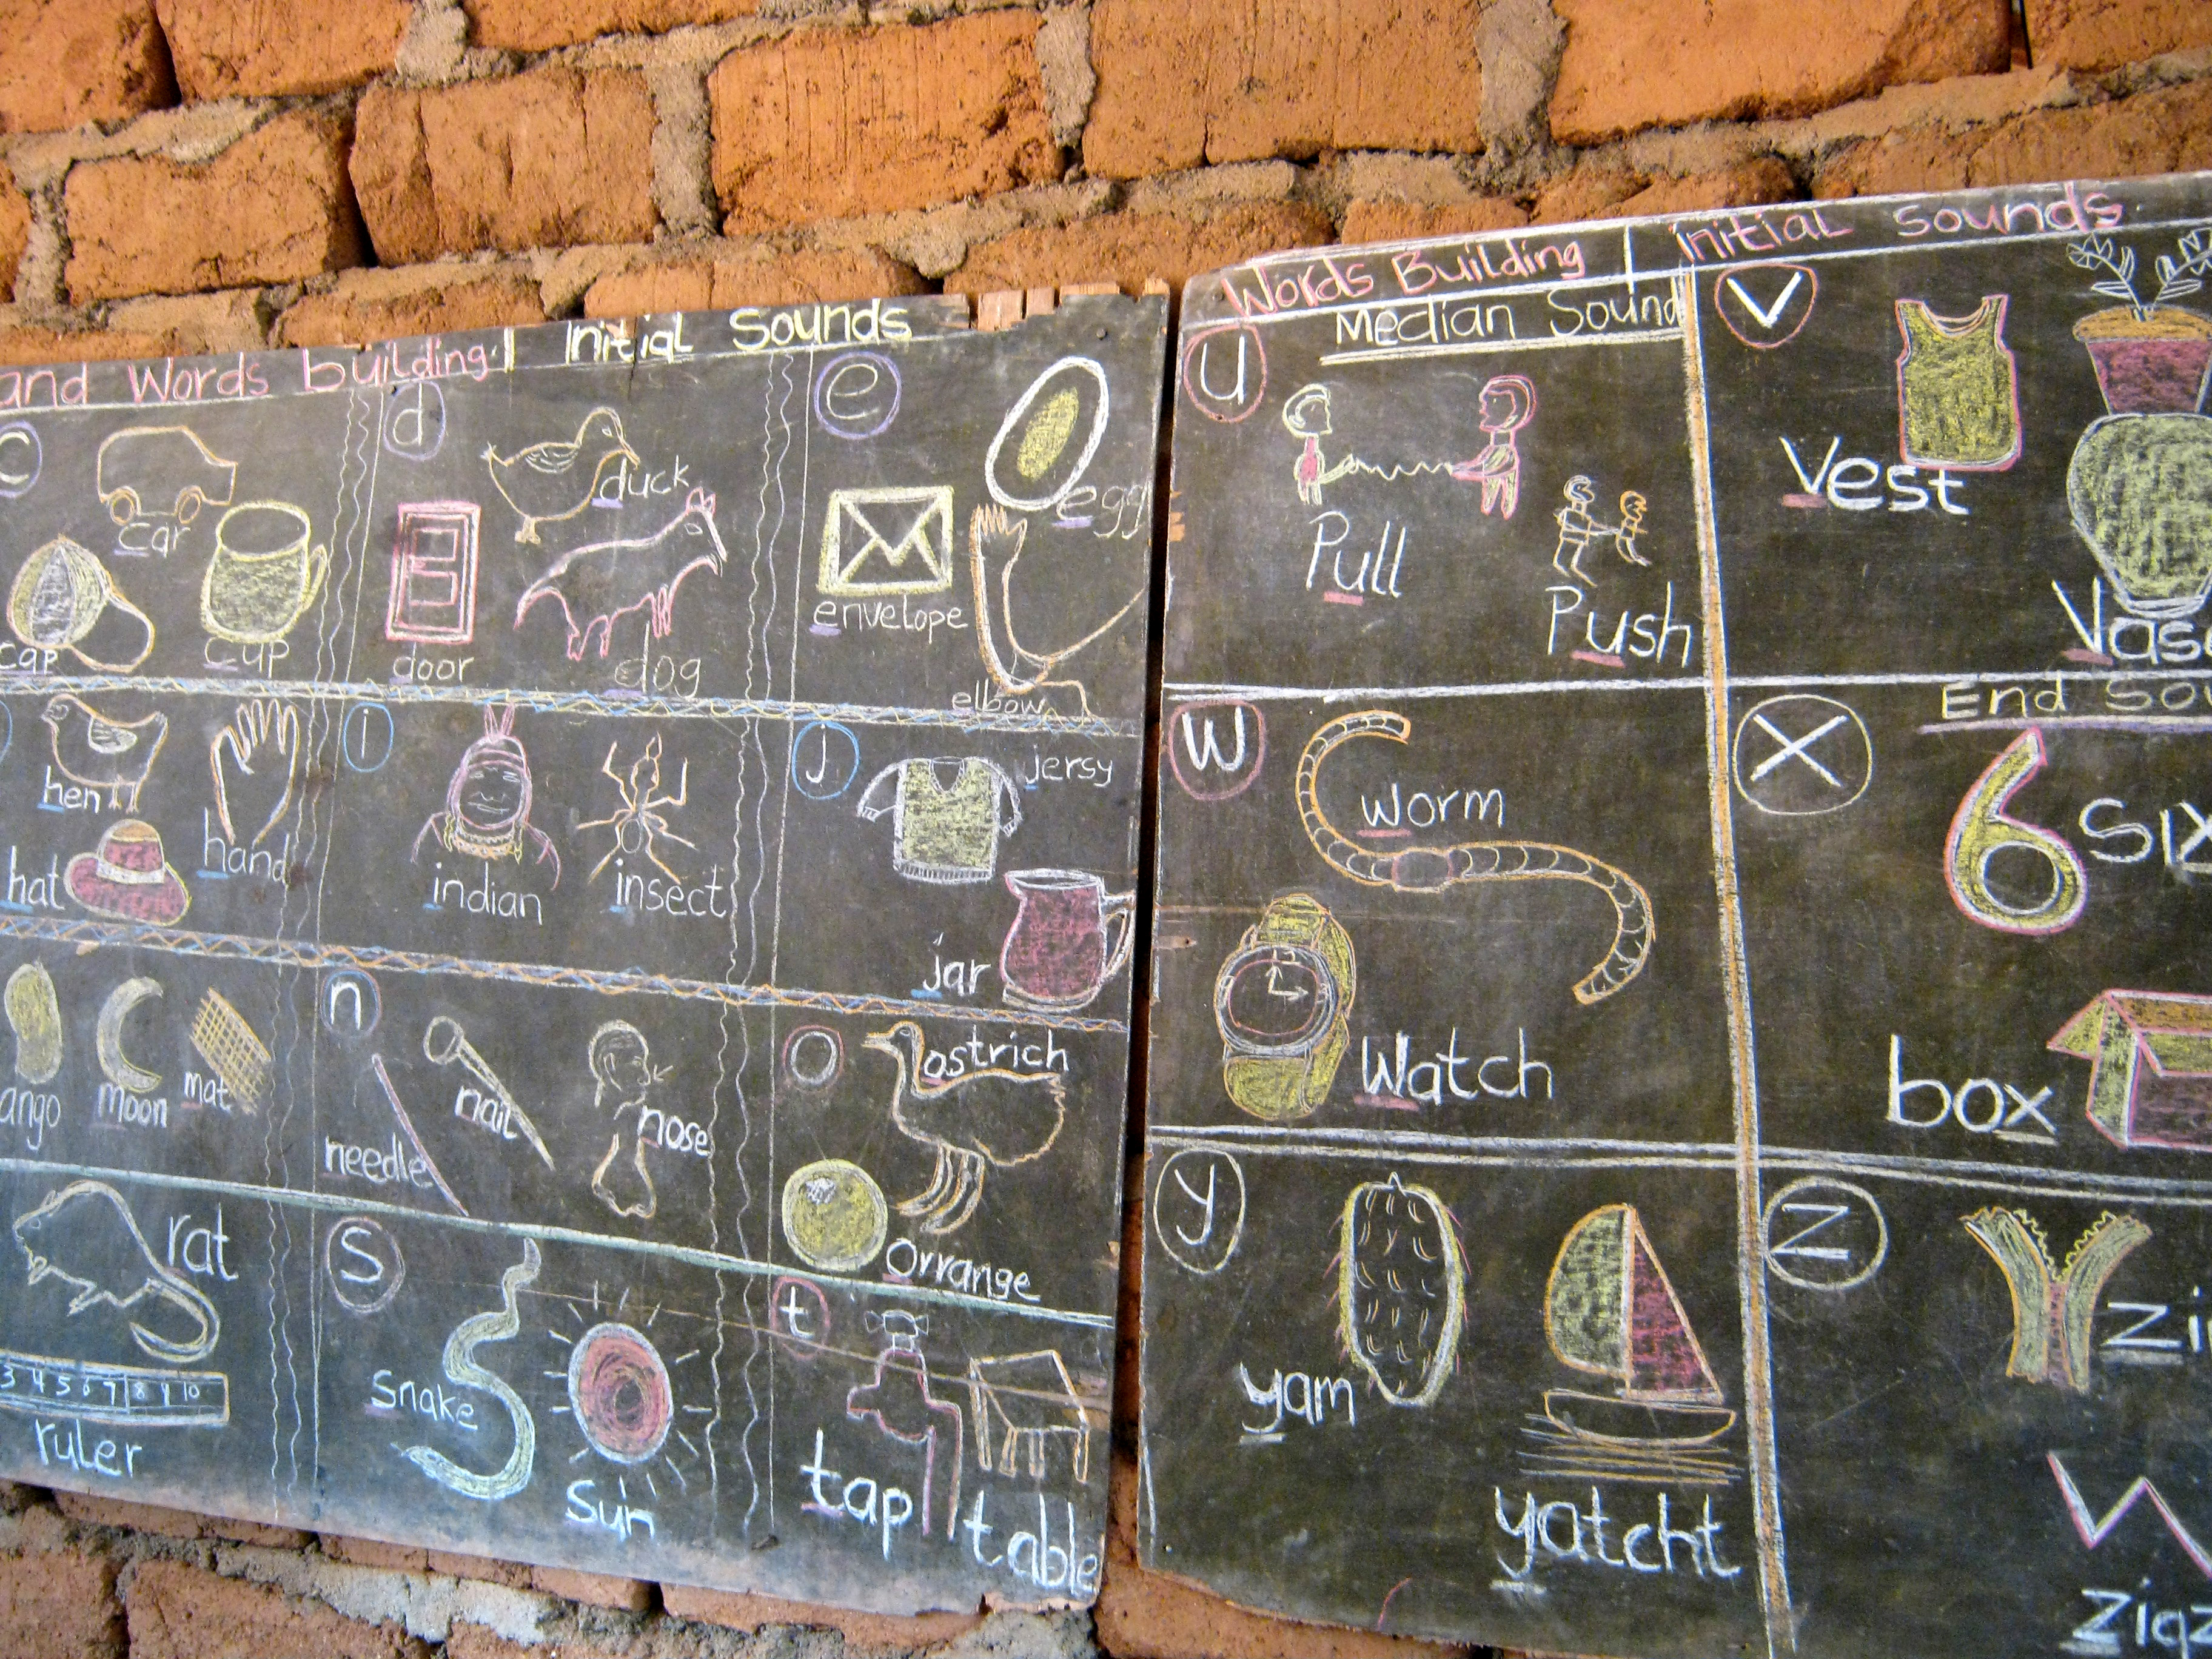 and Words building | Initial Sounds
c
car
cap
cup
d
duck
door
dog
e
egg
envelope
elbow
hen
hand
hat
i
indian
insect
j
jersy
jar
ango
moon
mat
n
needle
nail
nose
o
ostrich
orrange
rat
3 4 5 6 7 8 9 10
ruler
s
snake
sun
t
tap
table
Words Building | initial sounds
u
Median Sound
Pull
Push
v
Vest
Vase
w
worm
Watch
x
End So
6 six
box
y
yam
yatcht
z
zi
zigz